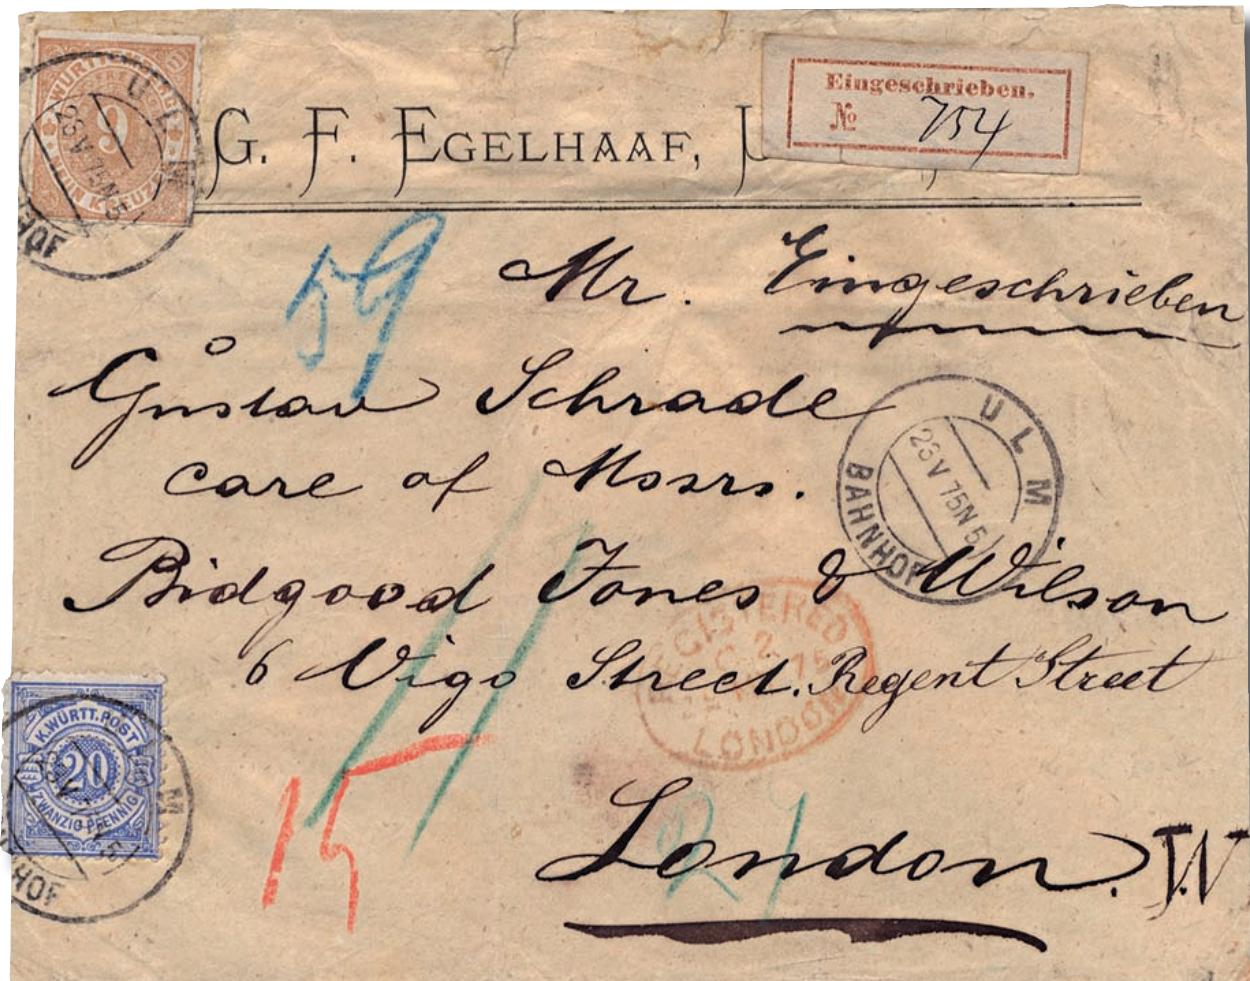 WÜRTTEMBERG
FREIMARKE
9
NEUN KREUZER
ULM
23 V 75 N 5
HOF
G. F. EGELHAAF,
Eingeschrieben.
№ 754
59
Mr. Eingeschrieben
Gustav Schrade
care of Messrs.
ULM
23 V 75 N 5
BAHNHOF
Bidgood Jones & Wilson
6 Vigo Street. Regent Street
REGISTERED
LONDON
K. WÜRTT. POST
20
ZWANZIG PFENNIG
HOF
15
21
London. W